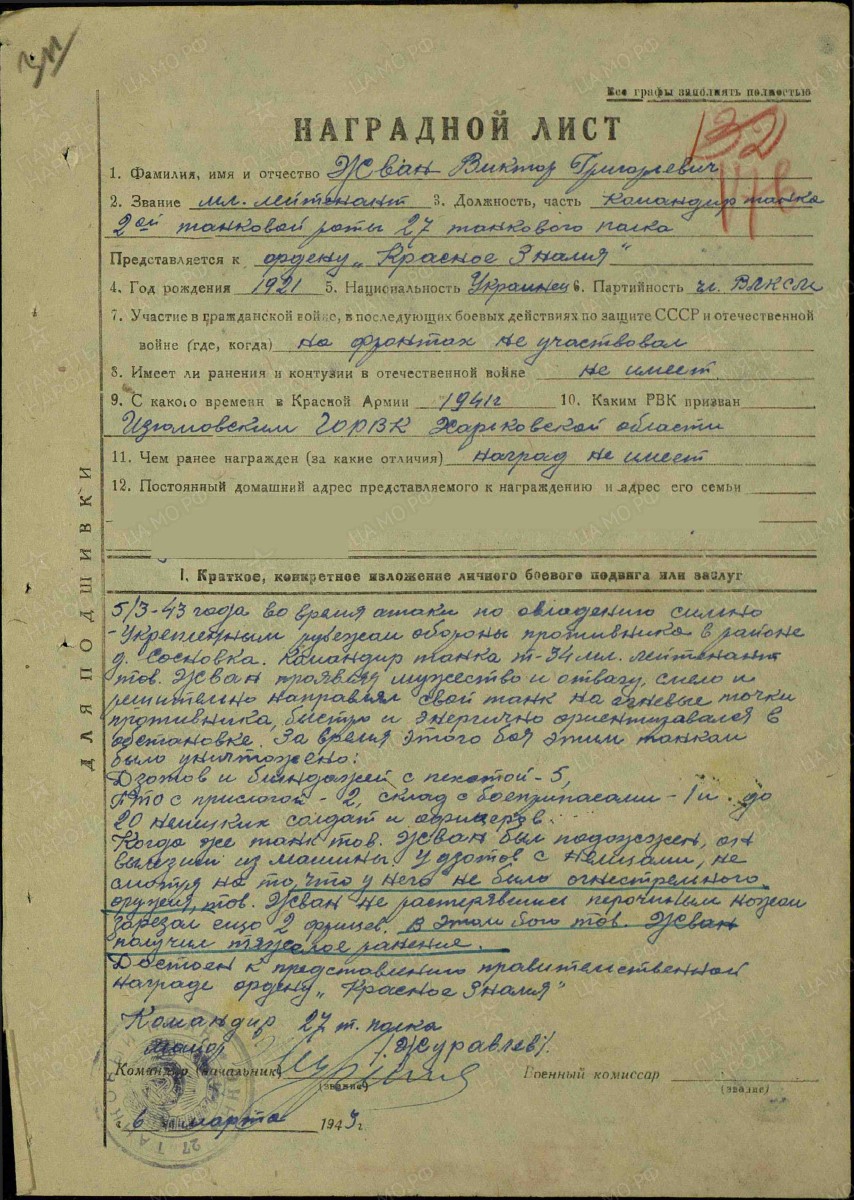 Все графы заполнять полностью
132
НАГРАДНОЙ ЛИСТ
1. Фамилия, имя и отчество Жван Виктор Григорьевич
2. Звание мл. лейтенант 3. Должность, часть Командир танка
2ой танковой роты 27 танкового полка
Представляется к ордену „Красное Знамя"
4. Год рождения 1921 5. Национальность Украинец 6. Партийность чл. ВЛКСМ
7. Участие в гражданской войне, в последующих боевых действиях по защите СССР и отечественной
войне (где, когда) на фронтах не участвовал
8. Имеет ли ранения и контузии в отечественной войне не имеет
9. С какого времени в Красной Армии 1941г 10. Каким РВК призван
Изюмовским ГОРВК Харьковской области
11. Чем ранее награжден (за какие отличия) наград не имеет
12. Постоянный домашний адрес представляемого к награждению и адрес его семьи
ДЛЯ ПОДШИВКИ
I. Краткое, конкретное изложение личного боевого подвига или заслуг
5/3-43 года во время атаки по овладению сильно
-укрепленным рубежом обороны противника в районе
д. Сосновка. Командир танка т-34 мл. лейтенант
тов. Жван проявляя мужество и отвагу, смело и
решительно направлял свой танк на огневые точки
противника, быстро и энергично ориентировался в
обстановке. За время этого боя этим танком
было уничтожено:
Дзотов и блиндажей с пехотой - 5,
ПТО с прислугой - 2, склад с боеприпасами - 1 и до
20 немецких солдат и офицеров.
Когда же танк тов. Жван был подожжен, он
вылезши из машины у дзотов с немцами, не
смотря на то, что у него не было огнестрельного
оружия, тов. Жван не растерявшись перочиным ножом
зарезал ещо 2 фрицев. В этом бою тов. Жван
получил тяжелое ранение.
Достоен к представлению правительственной
награде ордену „Красное Знамя"
Командир 27 т. полка
майор /Журавлев/.
Командир (начальник)
(звание)
Военный комиссар
(звание)
6 марта 1943 г.